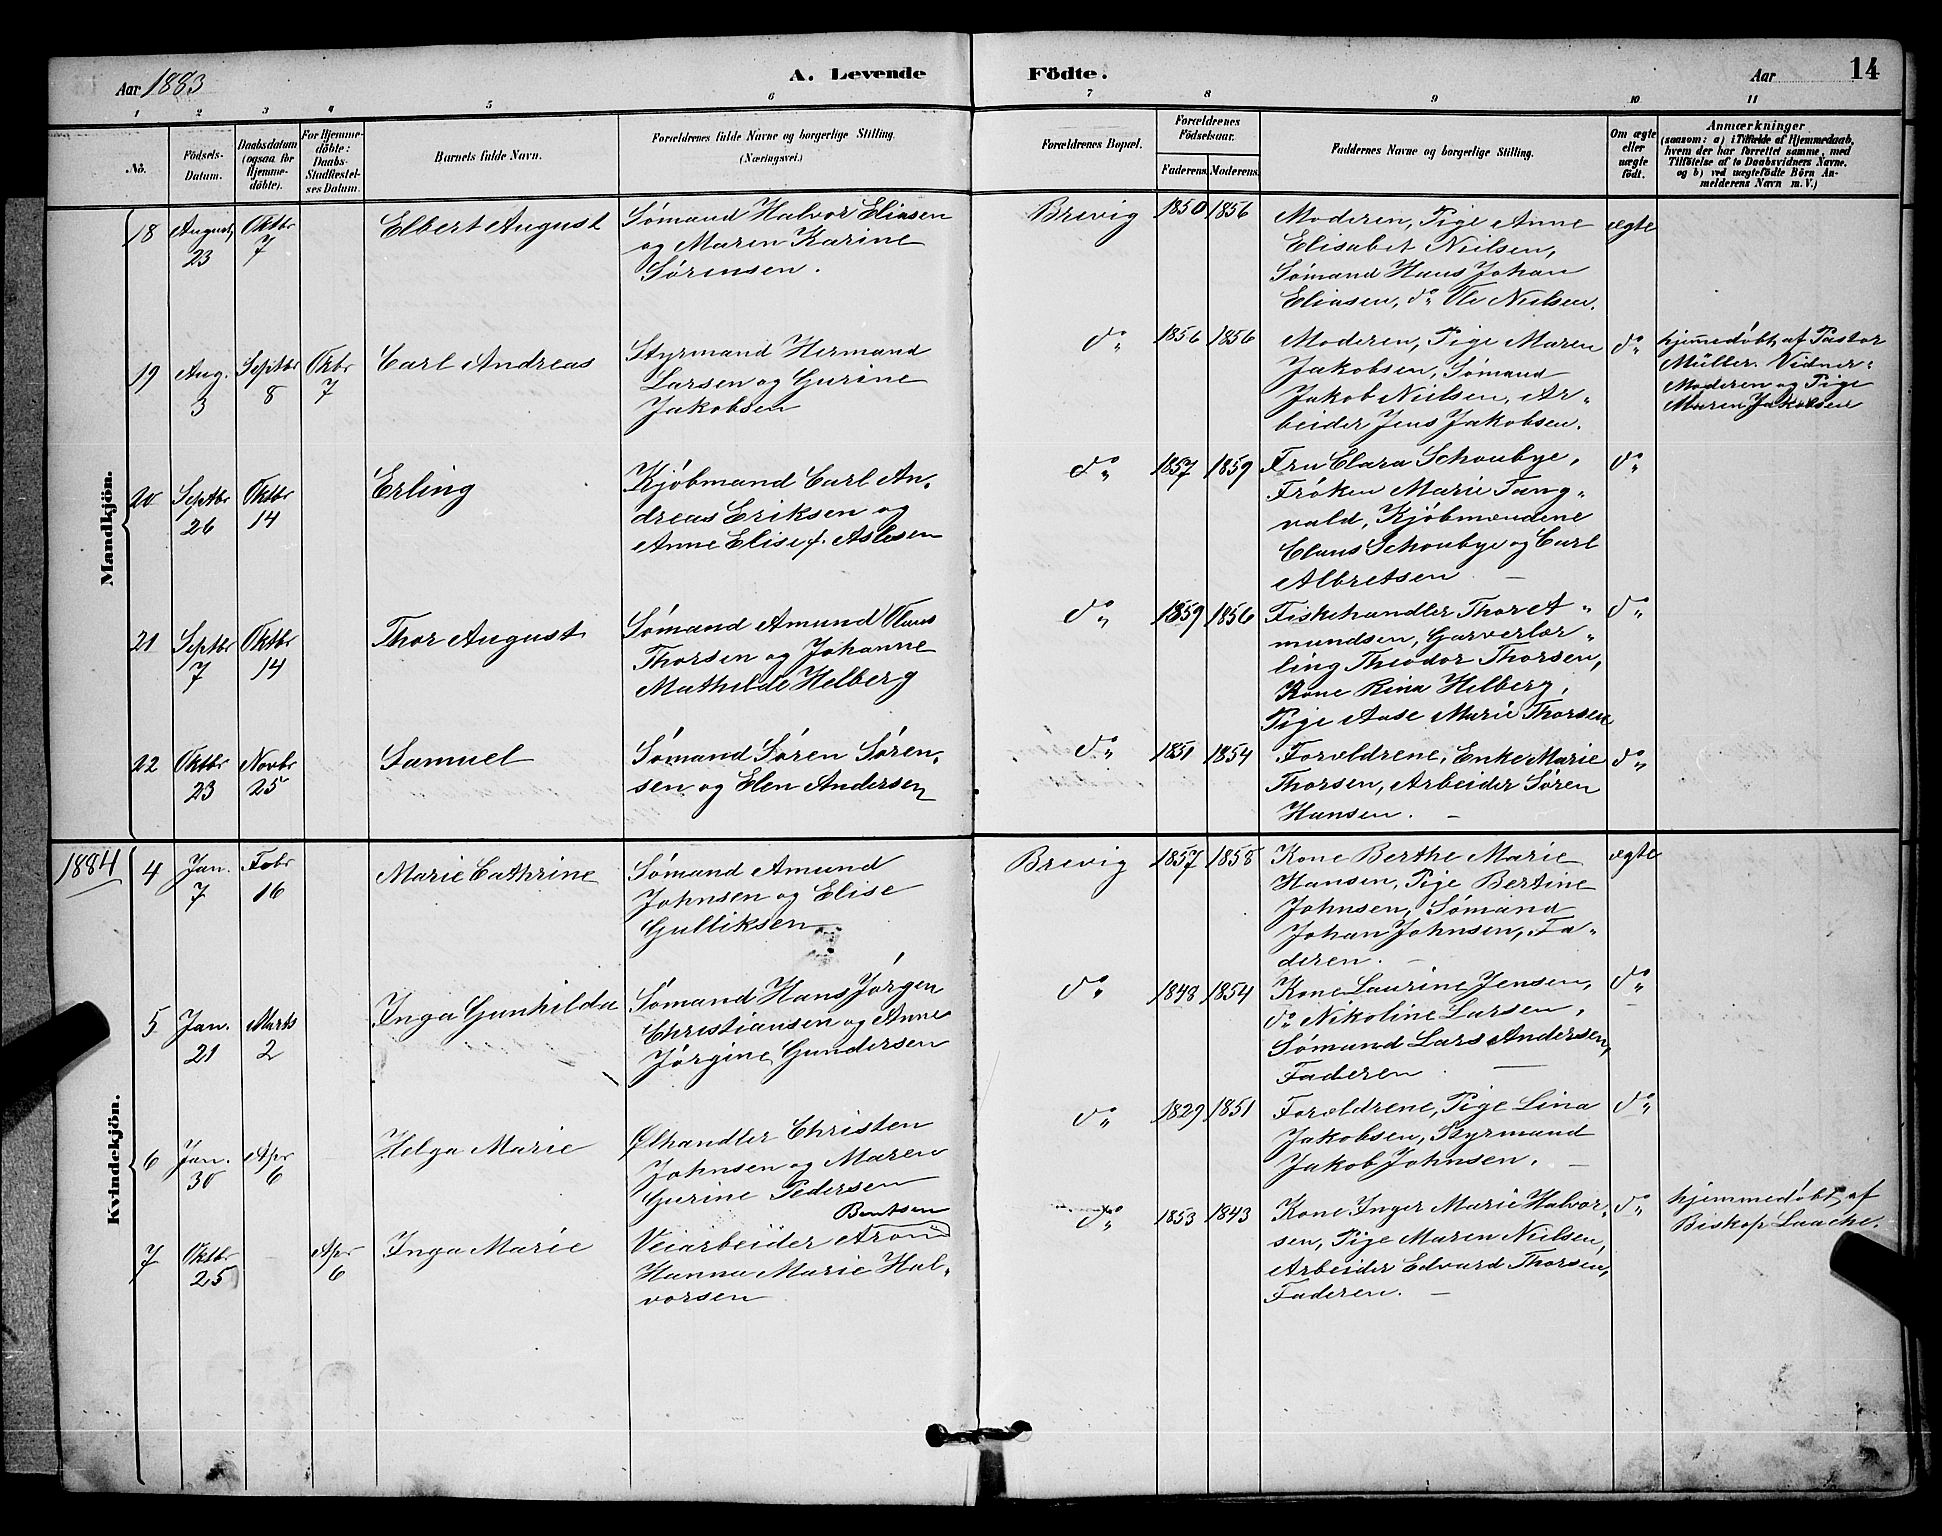 Aar 1883
A. Levende
Födte.
Aar
14
1 2 3 4 5 6 7 8 9 10 11
No.
Födsels-
Datum.
Daabsdatum
(ogsaa for
Hjemme-
döbte).
For Hjemme-
döbte:
Daabs-
Stadfæstel-
ses Datum.
Barnets fulde Navn.
Forældrenes fulde Navne og borgerlige Stilling.
(Næringsvei.)
Forældrenes Bopæl.
Forældrenes
Födselsaar.
Faderens. Moderens.
Faddernes Navne og borgerlige Stilling.
Om ægte
eller
uægte
födt.
Anmærkninger
(saasom: a) i Tilfælde af Hjemmedaab,
hvem der har forrettet samme, med
Tilföielse af to Daabsvidners Navne,
og b) ved uægtefödte Börn An-
melderens Navn m. V.)
Mandkjön.
18
August
23
Oktbr
7
Elbert August
Sømand Halvor Eliasen
og Maren Karine
Sørensen.
Brevig
1850
1856
Moderen, Pige Anne
Elisabet Nielsen,
Sømand Hans Johan
Eliasen, do Ole Nielsen.
ægte
19
Aug.
3
Septbr
8
Okbr
7
Carl Andreas
Styrmand Hermand
Larsen og Gurine
Jakobsen
do
1856
1856
Moderen, Pige Maren
Jakobsen, Sømand
Jakob Nielsen, Ar-
beider Jens Jakobsen.
do
hjemmedøbt af Pastor
Müller. Vidner:
Moderen og Pige
Maren Jakobsen
20
Septbr
26
Oktbr
14
Erling
Kjøbmand Carl An-
dreas Eriksen og
Anne Elise f. Aslesen
do
1857
1859
Fru Clara Schoubye,
Frøken Marie Tang-
vald, Kjøbmændene
Claus Schoubye og Carl
Albretsen
do
21
Septbr
7
Oktbr
14
Thor August
Sømand Amund Olaus
Thorsen og Johanne
Mathilde Helberg
do
1859
1856
Fiskehandler Thor A-
mundsen, Garverlær-
ling Theodor Thorsen,
Kone Rina Helberg,
Pige Aase Marie Thorsen
do
22
Oktbr
23
Novbr
25
Samuel
Sømand Søren Søren-
sen og Elen Andersen
do
1851
1854
Forældrene, Enke Marie
Thorsen, Arbeider Søren
Hansen.
do
1884
Kvindekjön.
4
Jan.
7
Febr
16
Marie Cathrine
Sømand Amund
Johnsen og Elise
Gulliksen
Brevig
1857
1858
Kone Berthe Marie
Hansen, Pige Bertine
Johnsen, Sømand
Johan Johnsen, Fa-
deren.
ægte
5
Jan.
21
Marts
2
Inga Gunhilda
Sømand Hans Jørgen
Christiansen og Anne
Jørgine Gundersen
do
1848
1854
Kone Laurine Jensen,
do Nikoline Larsen,
Sømand Lars Andersen,
Faderen
do
6
Jan.
30
Apr
6
Helga Marie
Ølhandler Christen
Johnsen og Maren
Gurine Pedersen
do
1829
1851
Forældrene, Pige Lina
Jakobsen, Styrmand
Jakob Johnsen.
do
7
Oktbr
25
Apr
6
Inga Marie
Bentsen
Veiarbeider Aron
Hanna Marie Hal-
vorsen
do
1853
1843
Kone Inger Marie Halvor-
sen, Pige Maren Nielsen,
Arbeider Edvard Thorsen,
Faderen.
do
hjemmedøbt af
Biskop Laache.